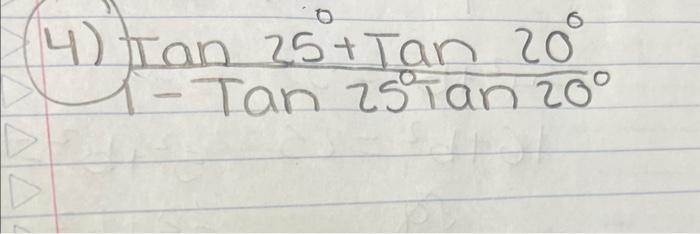 4) Tan 25° + Tan 20°
1 - Tan 25° Tan 20°